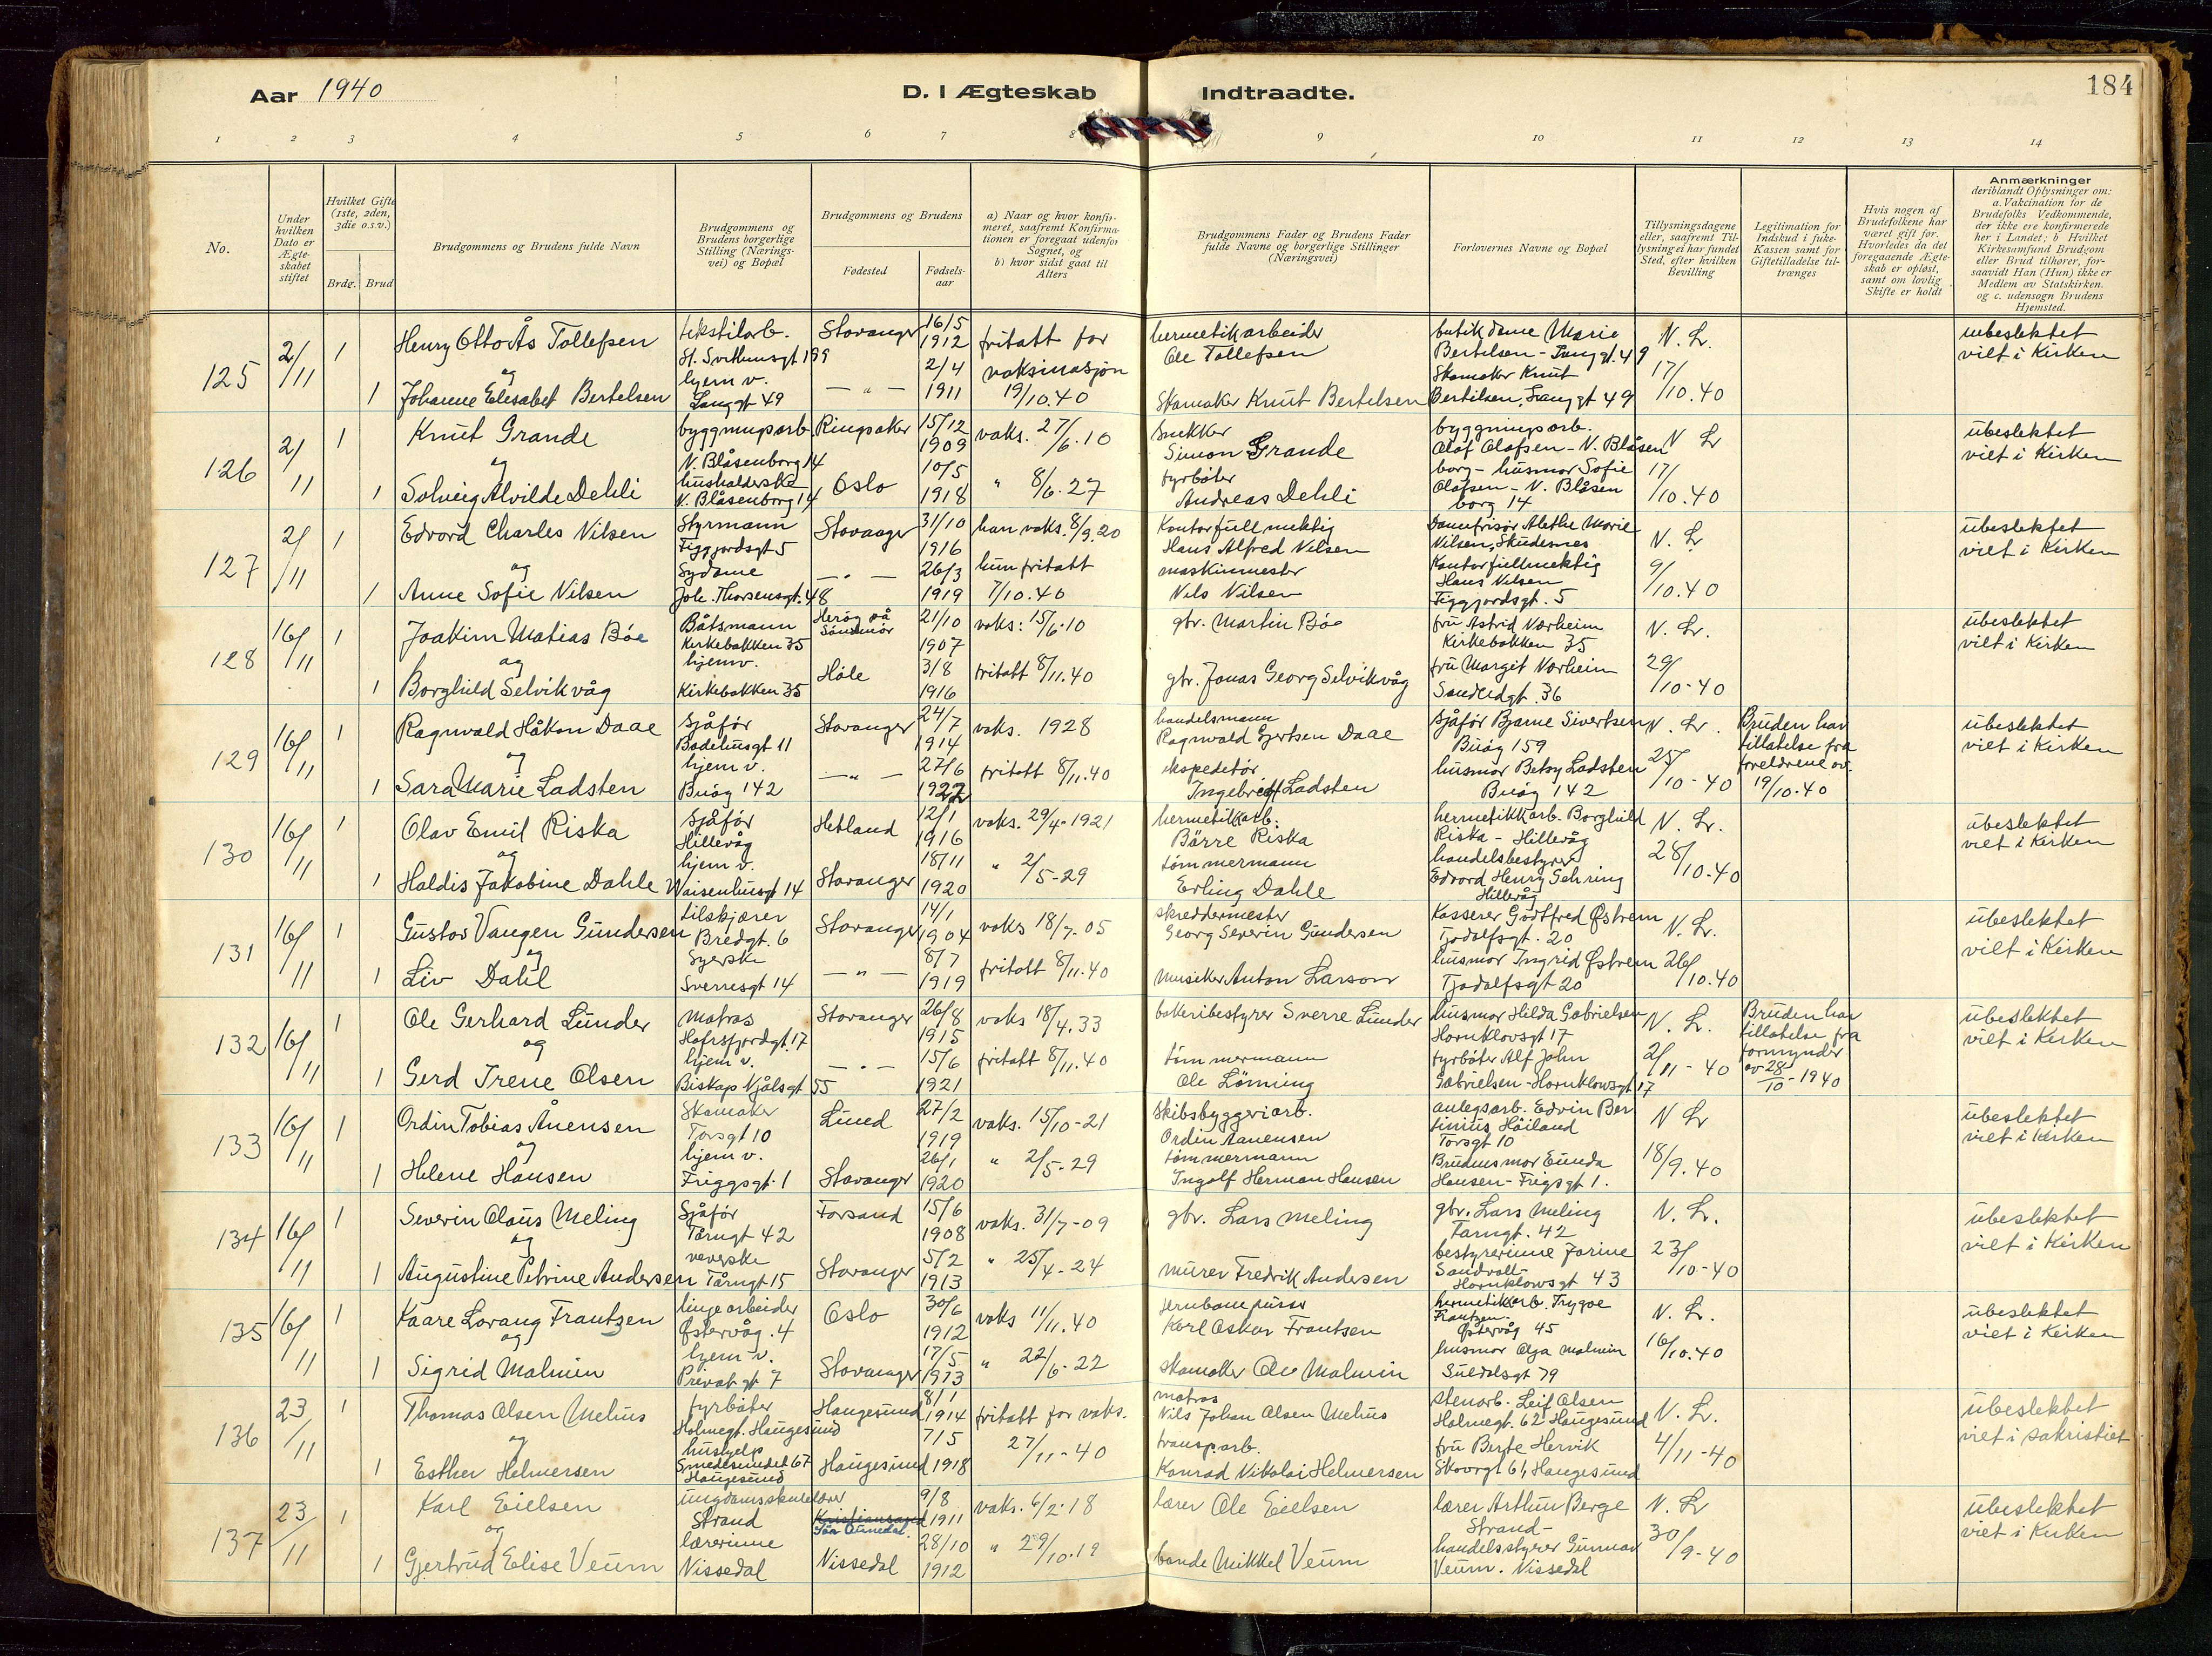 Aar 1940
D. I Ægteskab Indtraadte.
184
1 2 3 4 5 6 7 8 9 10 11 12 13 14
No.
Under hvilken Dato er Ægteskabet stiftet
Hvilket Gifte (1ste, 2den, 3die o.s.v.)
Brdg. Brud
Brudgommens og Brudens fulde Navn
Brudgommens og Brudens borgerlige Stilling (Næringsvei) og Bopæl
Brudgommens og Brudens
Fødested
Fødselsaar
a) Naar og hvor konfirmeret, saafremt Konfirmationen er foregaat udenfor Sognet, og
b) hvor sidst gaat til Alters
Brudgommens Fader og Brudens Fader fulde Navne og borgerlige Stillinger (Næringsvei)
Forlovernes Navne og Bopæl
Tillysningsdagene eller, saafremt Tillysning ei har fundet Sted, efter hvilken Bevilling
Legitimation for Indskud i Enkekassen samt for Giftetilladelse tiltrænges
Hvis nogen af Brudefolkene har været gift før. Hvorledes da det foregaaende Ægteskab er opløst, samt om lovlig Skifte er holdt
Anmærkninger
deriblandt Oplysninger om: a. Vakcination for de Brudefolks Vedkommende, der ikke ere konfirmerede her i Landet; b Hvilket Kirkesamfund Brudgom eller Brud tilhører, forsaavidt Han (Hun) ikke er Medlem av Statskirken. og c. udensogn Brudens Hjemsted.
125 2/11 1 Henry Otto Ås Tollefsen tekstilarb. St. Svithunsgt 199 Stavanger 16/5 1912 fritatt for vaksinasjon 19/10.40 hermetikarbeider Ole Tollefsen butikdame Marie Bertelsen - Langgt. 49 N. Lr. ubeslektet
og
1 Johanne Elisabet Bertelsen hjem v. Langgt 49 — " — 2/4 1911 Skomaker Knut Bertelsen Skomaker Knut Bertelsen, Langgt 49 17/10.40 viet i Kirken
126 2/11 1 Knut Grande byggningsarb N. Blåsenborg 14 Ringsaker 15/12 1909 vaks. 27/6.10 Snekker Simon Grande byggningsarb. Olaf Olafsen - N. Blåsenborg - N Lr ubeslektet
og
1 Solveig Alvilde Dehli husholderske N. Blåsenborg 14 Oslo 10/5 1918 " 8/6.27 fyrbøter Andreas Dehli husmor Sofie Olafsen - N. Blåsenborg 14 17/10.40 viet i Kirken
127 2/11 1 Edvard Charles Nilsen Styrmann Figgjordsgt 5 Stavanger 31/10 1916 han vaks. 8/9.20 Kontorfullmektig Hans Alfred Nilsen Damefrisør Alethe Marie Nilsen, Skudesnes N. Lr ubeslektet
og
1 Anne Sofie Nilsen Sydame Joh. Thorsensgt. 48 — " — 26/3 1919 hun fritatt 7/10.40 maskinmester Nils Nilsen Kontorfullmektig Hans Nilsen Figgjordsgt. 5 9/10.40 viet i Kirken
128 16/11 1 Joakim Matias Bøe Båtsmann Kirkebakken 35 Herøy på Sunnmør 21/10 1907 vaks: 15/6.10 gbr. Martin Bøe fru Astrid Norheim Kirkebakken 35 N. Lr. ubeslektet
og
1 Borghild Selvikvåg hjemv. Kirkebakken 35 Høle 3/8 1916 fritatt 8/11.40 gbr. Jonas Georg Selvikvåg fru Margit Norheim Sandeidgt. 36 29/10-40 viet i Kirken
129 16/11 1 Ragnvald Håkon Daae Sjåfør Badehusgt 11 Stavanger 24/7 1914 vaks. 1928 handelsmann Ragnvald Gjertsen Daae Sjåfør Bjarne Sivertsen Buøy 159 N. Lr. Bruden har tillatelse fra foreldrene av 19/10.40 ubeslektet
og
1 Sara Marie Ladsten hjem v. Buøy 142 — " — 27/6 1922 fritatt 8/11.40 ekspeditør Ingebret Ladsten husmor Betsy Ladsten Buøy 142 25/10-40 viet i Kirken
130 16/11 1 Olav Emil Riska Sjåfør Hillevåg Hetland 12/1 1916 vaks. 29/4-1921 hermetikkarb. Bärre Riska hermetikkarb. Borghild Riska - Hillevåg N. Lr. ubeslektet
og
1 Haldis Jakobine Dahle hjem v. Waisenhusgt 14 Stavanger 18/11 1920 " 2/5-29 tømmermann Erling Dahle handelsbestyrer Edvard Henry Gehring Hillevåg 28/10.40 viet i Kirken
131 16/11 1 Gustav Vaugen Gundersen tilskjærer Bredgt. 6 Stavanger 14/1 1904 vaks 18/7.05 skreddermester Georg Severin Gundersen Kasserer Godtfred Østrem Tjodolfsgt. 20 N. Lr. ubeslektet
og
1 Liv Dahl Syerske Sverresgt 14 — " — 8/7 1919 fritatt 8/11.40 Musiker Anton Larson husmor Ingrid Østrem Tjodolfsgt 20 26/10.40 viet i Kirken
132 16/11 1 Ole Gerhard Lunder Matros Hafrsfjordgt. 17 Stavanger 26/8 1915 vaks 18/4.33 bakeribestyrer Sverre Lunder husmor Hilda Gabrielsen Hornklovsgt 17 N. Lr. Bruden har tillatelse fra formynder av 28/10-1940 ubeslektet
og
1 Gerd Irene Olsen hjem v. Biskop Njålsgt 55 — " — 15/6 1921 fritatt 8/11.40 tømmermann Ole Lønning fyrbøter Alf John Gabrielsen - Hornklovsgt 17 2/11-40 viet i Kirken
133 16/11 1 Ordin Tobias Ånensen Skomaker Torsgt 10 Lund 27/2 1919 vaks. 15/10-21 Skibsbyggeriarb. Ordin Aanensen anlegsarb. Edvin Bertinius Høiland Torsgt 10 N Lr ubeslektet
og
1 Helene Hansen hjem v. Friggsgt. 1 Stavanger 26/1 1920 " 2/5-29 tømmermann Ingolf Herman Hansen Brudens mor Eunda Hansen - Frigsgt 1. 18/9.40 viet i Kirken
134 16/11 1 Severin Olaus Meling Sjåfør Tårngt 42 Forsand 15/6 1908 vaks. 31/7-09 gbr. Lars Meling gbr. Lars Meling Tarngt. 42 N. Lr. ubeslektet
og
1 Augustine Petrine Andersen veverske Tårngt 15 Stavanger 5/2 1913 " 25/4-24 murer Fredrik Andersen bestyrerinne Jorine Sandvoll - Hornklovsgt 43 23/10-40 viet i Kirken
135 16/11 1 Kaare Lorang Frantzen linjearbeider Østervåg. 4 Oslo 30/6 1912 vaks 11/11.40 Jernbanepusser Karl Oskar Frantsen hermetikkarb. Trygve Frantzen. Østervåg 45 N. Lr. ubeslektet
og
1 Sigrid Malmin hjem v. Prevatgt 7 Stavanger 17/5 1913 " 22/6-22 skomaker Ole Malmin husmor Olga Malmin Suldalsgt 79 16/10.40 viet i Kirken
136 23/11 1 Thomas Olsen Melius fyrbøter Holmegt. Haugesund Haugesund 8/1 1914 fritatt for vaks. 27/11-40 matros Nils Johan Olsen Melius stenarb. Leif Olsen Holmegt. 62 Haugesund N. Lr. ubeslektet
og
1 Esther Helmersen hushjelp Smedesundet 67 Haugesund Haugesund 7/5 1918 transp.arb. Konrad Nikolai Helmersen fru Berte Hervik Skovrgt 61, Haugesund 4/11-40 viet i sakristiet
137 23/11 1 Karl Eielsen ungdomsskulelærer Strand Kristiansand 9/8 1911 vaks. 6/2-18 lærer Ole Eielsen lærer Arthur Berge Strand - N. Lr ubeslektet
og
1 Gjertrud Elise Veum lærerinne Nissedal Nissedal 28/10 1912 " 29/10.19 bonde Mikkel Veum handelsstyrer Gunnar Veum. Nissedal 30/9-40 viet i Kirken